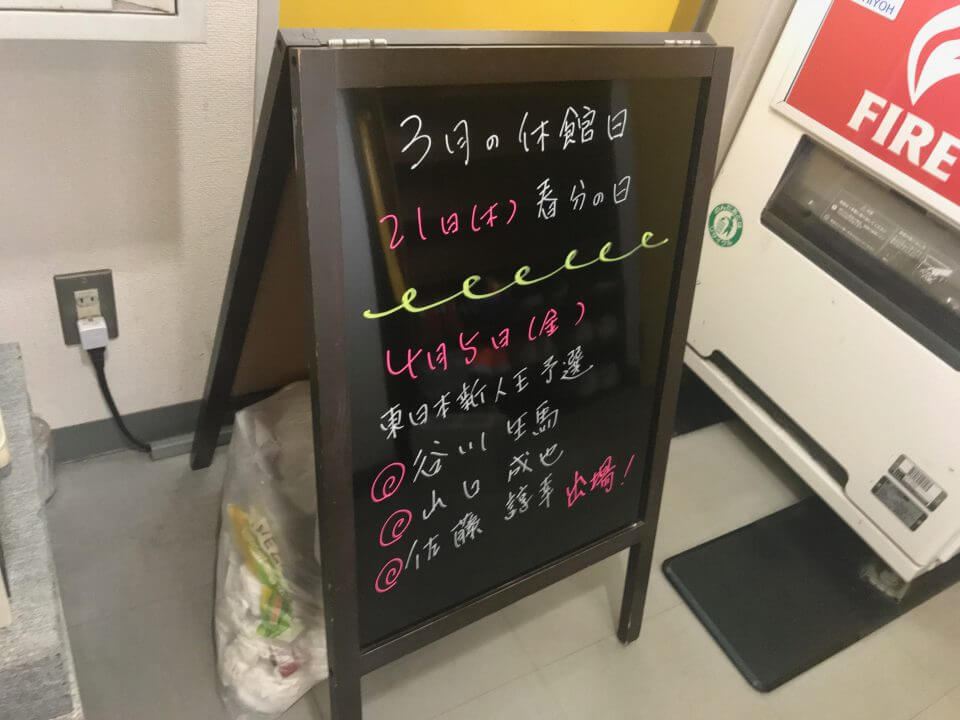 3月の休館日
21日(木) 春分の日
4月5日(金)
東日本新人王予選
谷川 生馬
山口 成也
佐藤 諄幸 出場!
FIRE